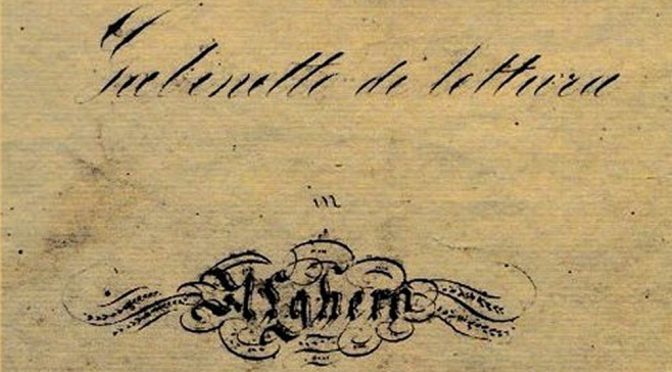 Gabinetto di lettura
in
Alghero